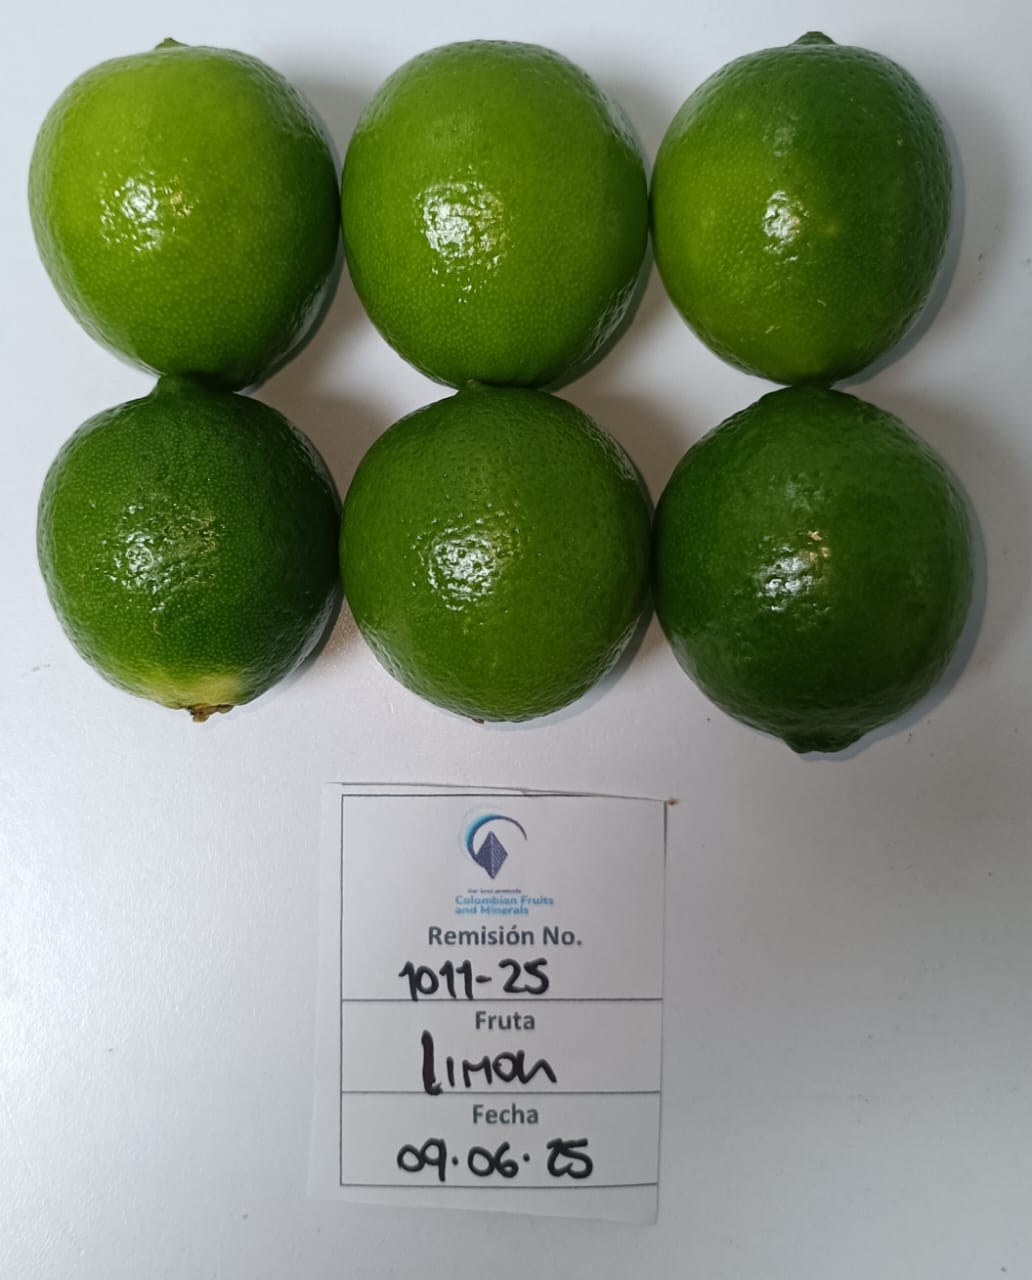 Our best products
Colombian Fruits
and Minerals
Remisión No.
1011-25
Fruta
LIMON
Fecha
09.06.25